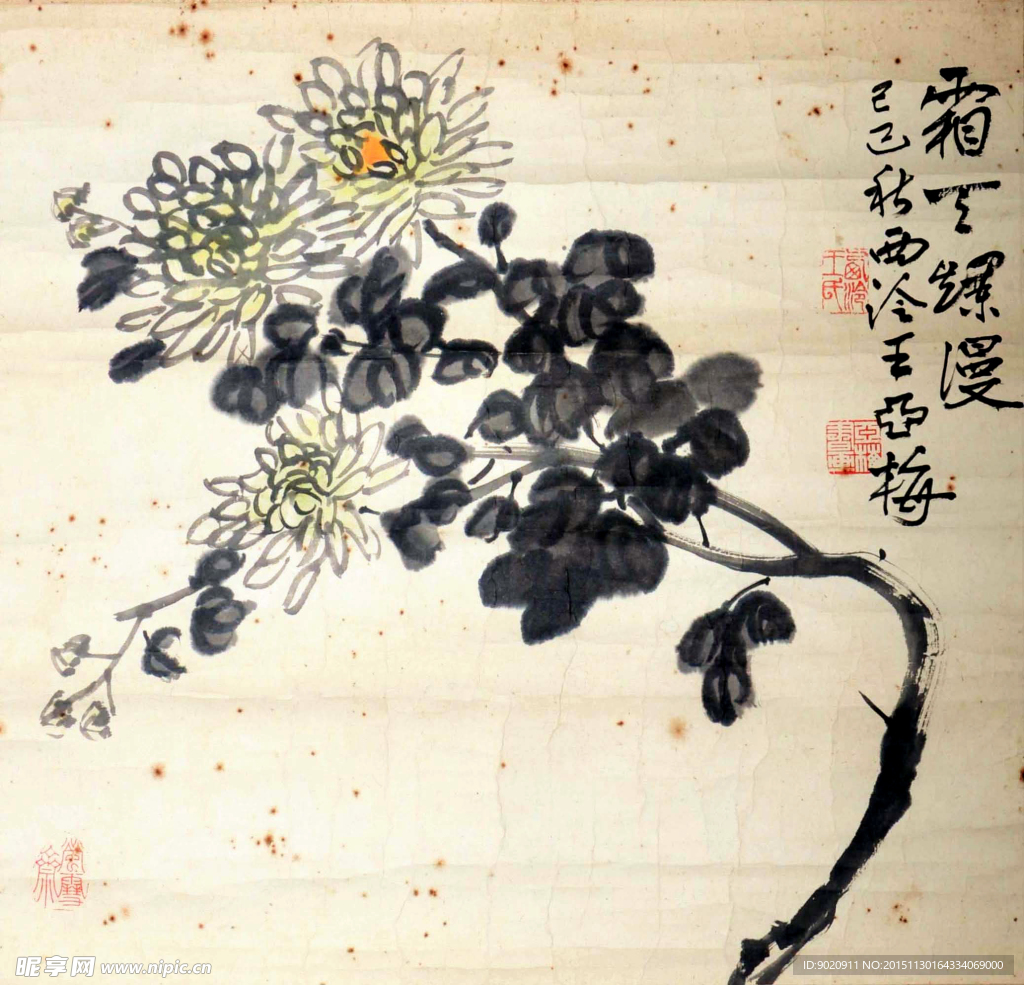 霜天爛漫
己巳秋西泠王亞梅
昵享网 www.nipic.cn
ID:9020911 NO:20151130164334069000